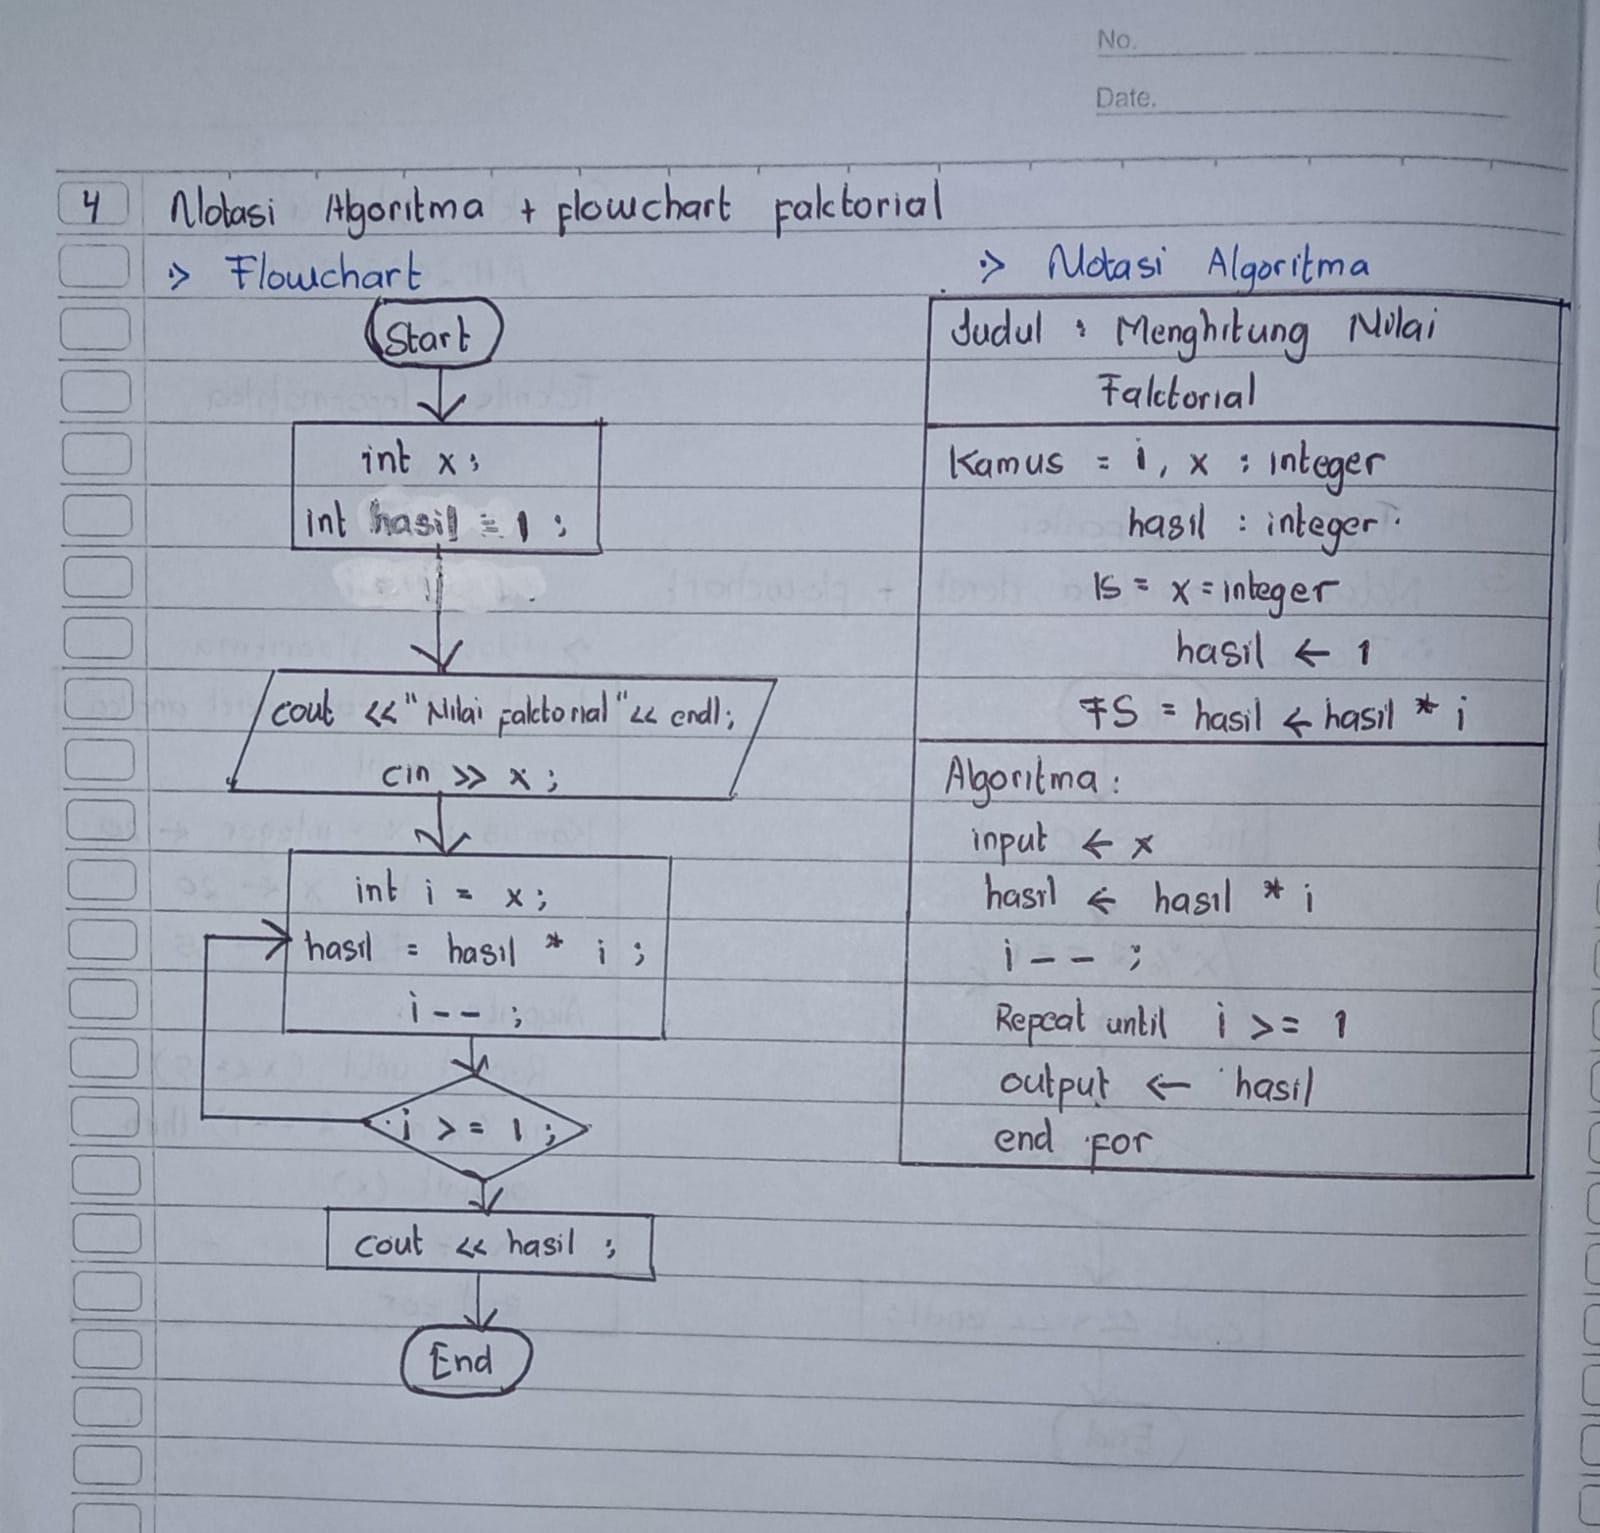 No.
Date.
4
Notasi Algoritma + flowchart faktorial
:> Flowchart
Start
int x;
int hasil = 1 ;
cout << "Nilai faktorial" << endl;
cin >> x ;
int i = x ;
hasil = hasil * i ;
i -- ;
i >= 1 ;
cout << hasil ;
End
:> Notasi Algoritma
Judul : Menghitung Nilai
Faktorial
Kamus = i, x : integer
hasil : integer.
IS = x = integer
hasil ← 1
FS = hasil ← hasil * i
Algoritma :
input ← x
hasil ← hasil * i
i -- ;
Repeat until i >= 1
output ← hasil
end for